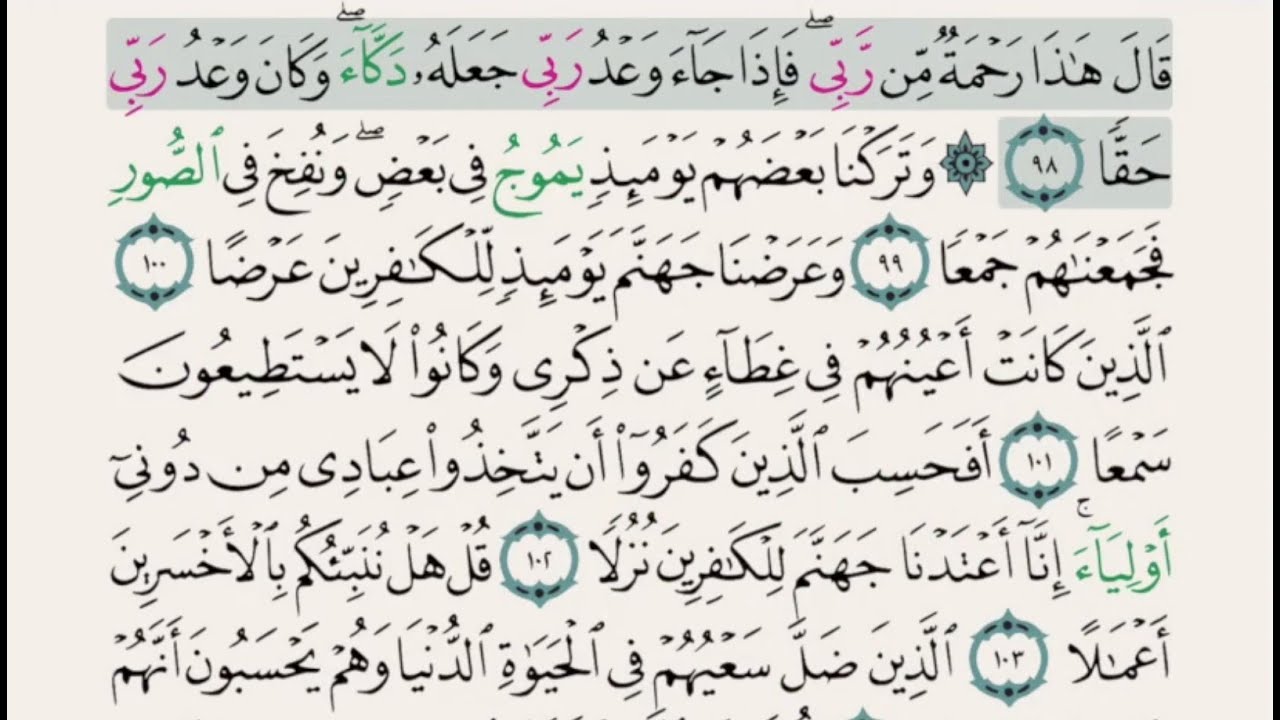 قَالَ هَٰذَا رَحْمَةٌ مِّن رَّبِّي ۖ فَإِذَا جَآءَ وَعْدُ رَبِّي جَعَلَهُۥ دَكَّآءَ ۖ وَكَانَ وَعْدُ رَبِّي
حَقًّا ٩٨ ۞ وَتَرَكْنَا بَعْضَهُمْ يَوْمَئِذٍ يَمُوجُ فِي بَعْضٍ ۖ وَنُفِخَ فِي ٱلصُّورِ
فَجَمَعْنَٰهُمْ جَمْعًا ٩٩ وَعَرَضْنَا جَهَنَّمَ يَوْمَئِذٍ لِّلْكَٰفِرِينَ عَرْضًا ١٠٠
ٱلَّذِينَ كَانَتْ أَعْيُنُهُمْ فِي غِطَآءٍ عَن ذِكْرِي وَكَانُوا۟ لَا يَسْتَطِيعُونَ
سَمْعًا ١٠١ أَفَحَسِبَ ٱلَّذِينَ كَفَرُوٓا۟ أَن يَتَّخِذُوا۟ عِبَادِي مِن دُونِيٓ
أَوْلِيَآءَ ۚ إِنَّآ أَعْتَدْنَا جَهَنَّمَ لِلْكَٰفِرِينَ نُزُلًا ١٠٢ قُلْ هَلْ نُنَبِّئُكُم بِٱلْأَخْسَرِينَ
أَعْمَٰلًا ١٠٣ ٱلَّذِينَ ضَلَّ سَعْيُهُمْ فِي ٱلْحَيَوٰةِ ٱلدُّنْيَا وَهُمْ يَحْسَبُونَ أَنَّهُمْ